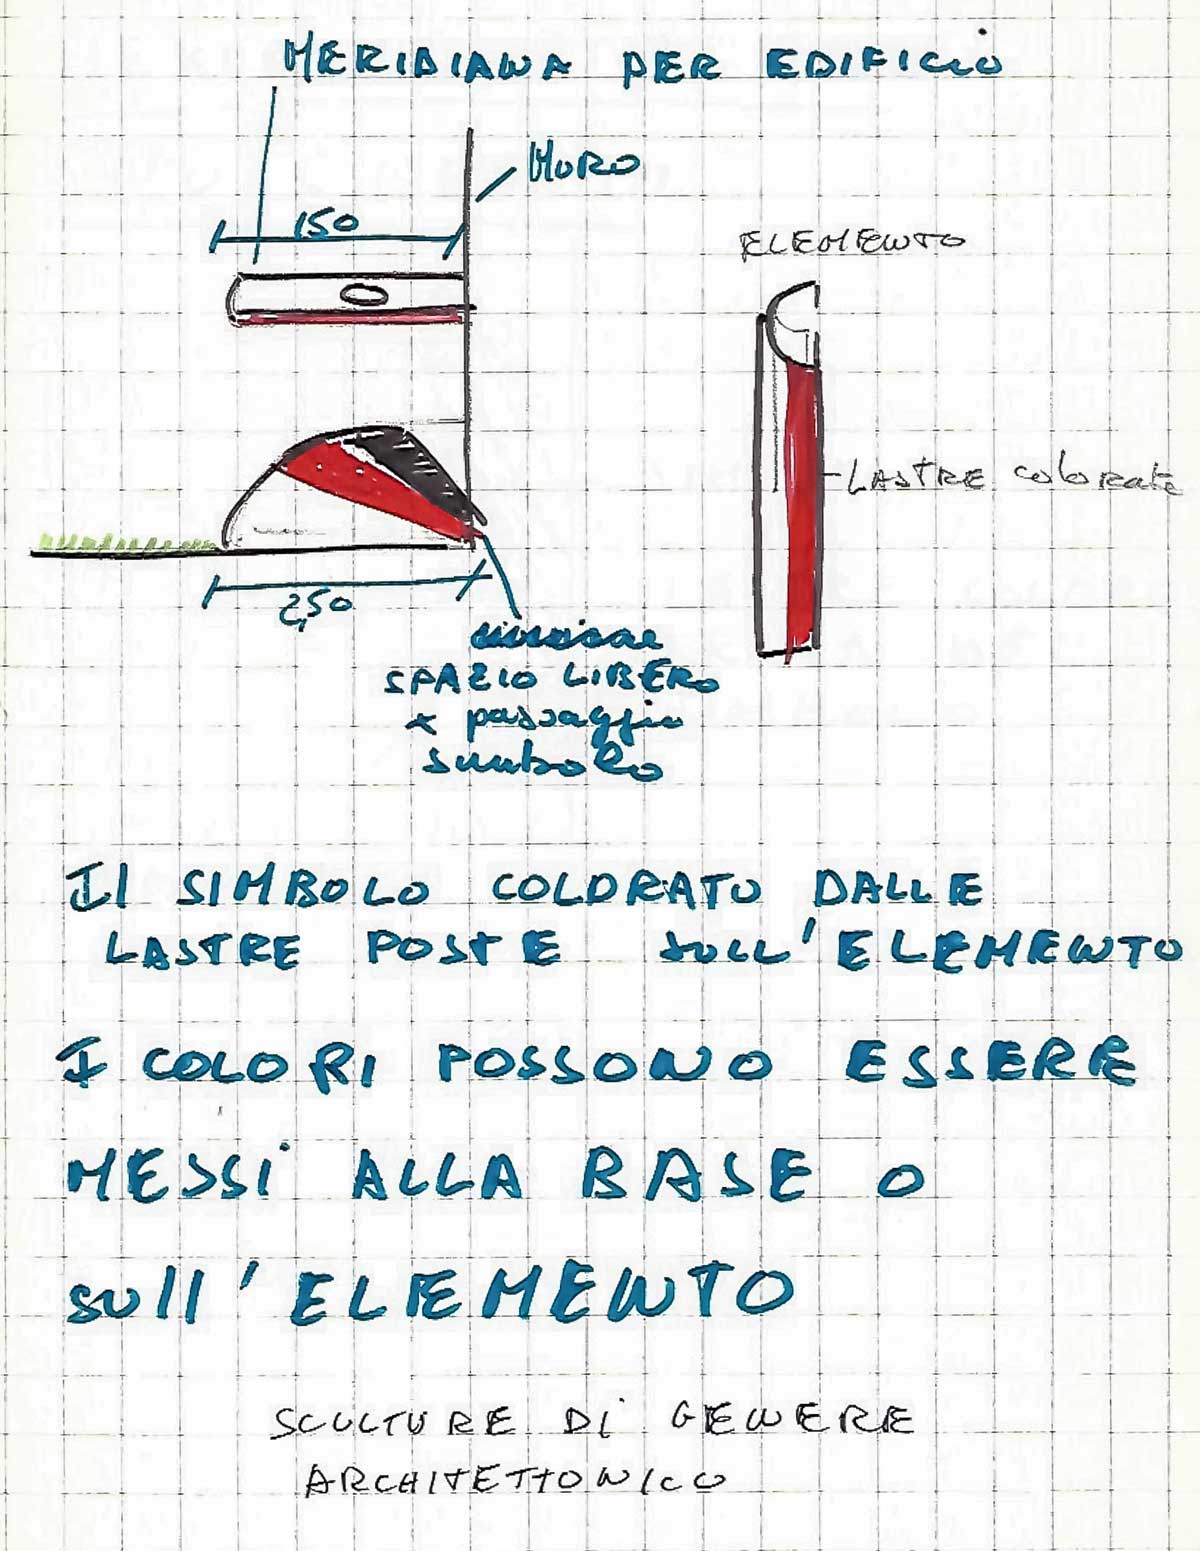 MERIDIANA PER EDIFICIO
MURO
150
ELEMENTO
LASTRE colorate
2,50
SPAZIO LIBERO
x passaggio
simbolo
Il SIMBOLO COLORATO DALLE
LASTRE POSTE SULL'ELEMENTO
I COLORI POSSONO ESSERE
MESSi ALLA BASE O
sull'ELEMENTO
SCULTURE Di GENERE
ARCHITETTONICO